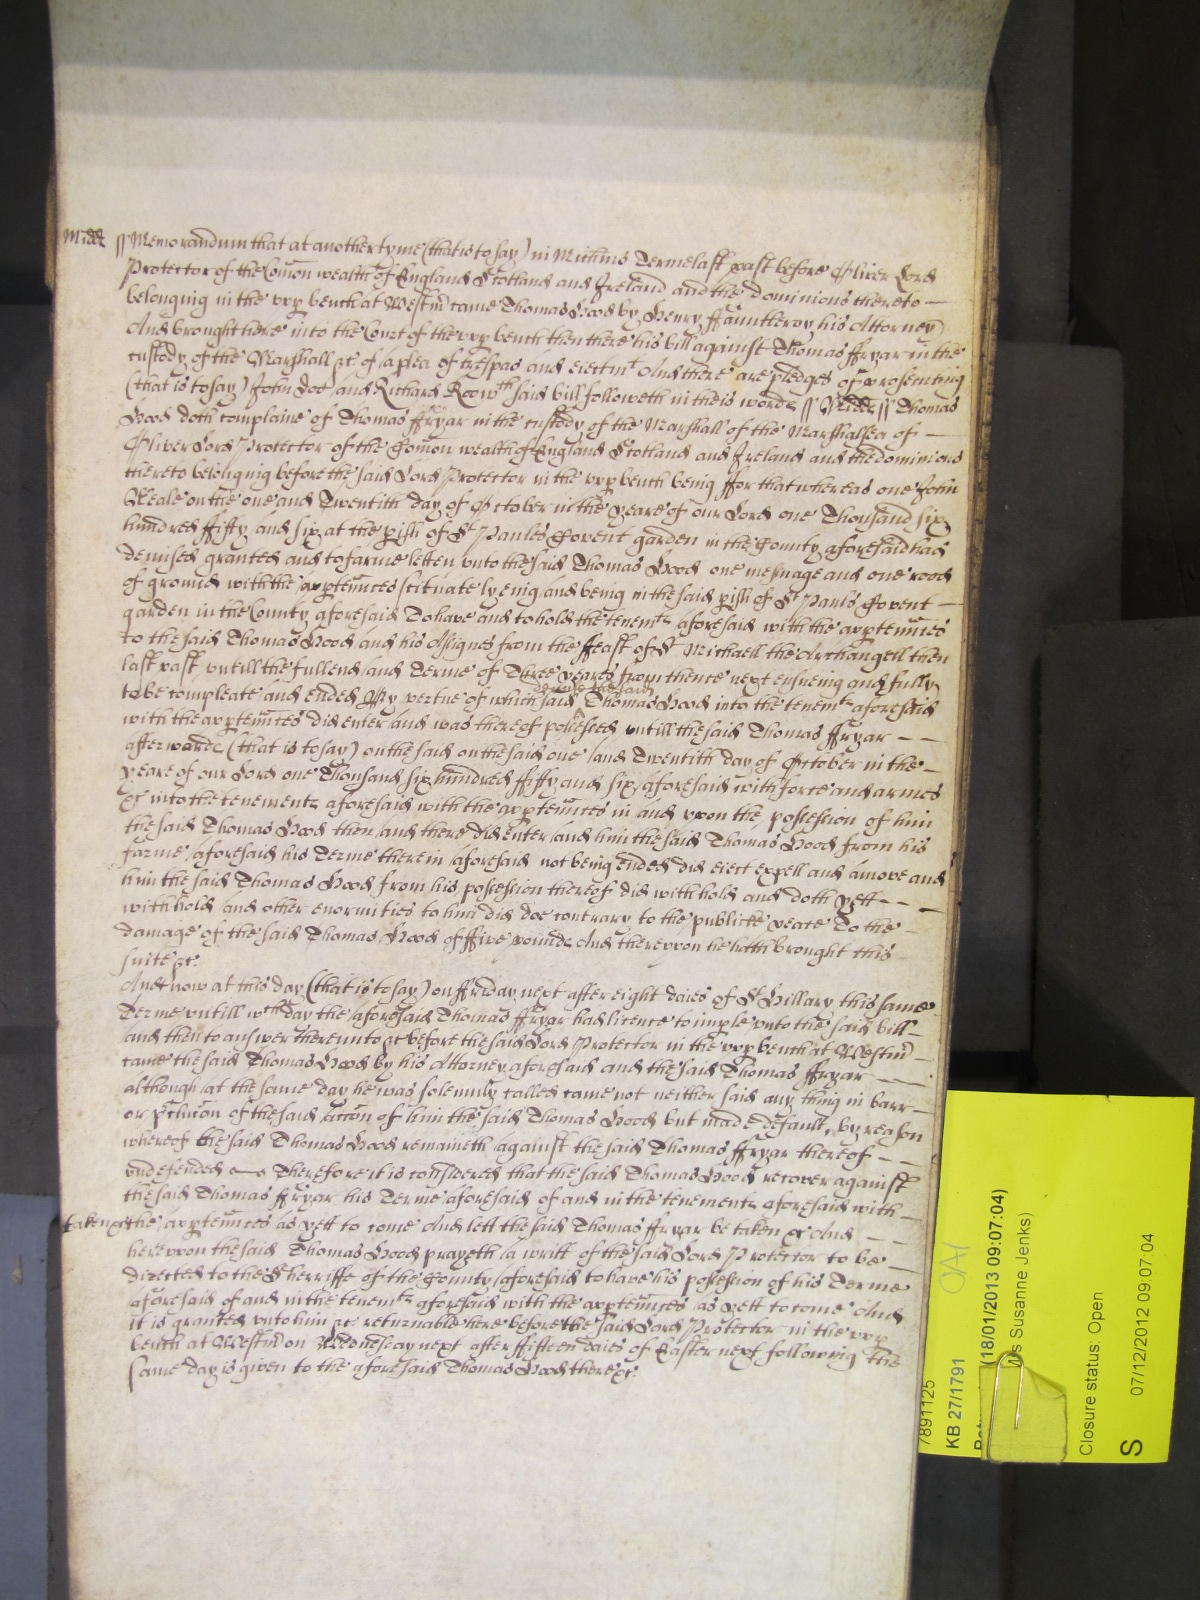 Midd // Memorandum that at another tyme (that is to say) in Michūs Terme last past before Oliver Lord
Protector of the Com̄on wealth of England Scotland and Ireland and the dominions thereto —
belonging in the vpp bench at Westm̄ came Thomas Hood by Henry ffauntleroy his Attorney
And brought here into the Court of the vpp bench then there his bill against Thomas ffryar in the
custody of the Marshall &c of a plea of trespas and eiectmt And there are pledges of prosecuting
(that is to say) John Doe and Richard Roo wch said bill followeth in theis words // Midd // Thomas
Hood doth complaine of Thomas ffryar in the custody of the Marshall of the Marshalsea of —
Oliver Lord Protector of the Com̄on wealth of England Scotland and Ireland and the dominions
thereto belonging before the said Lord Protector in the vpp bench being ffor that whereas one John
Neale on the one and Twentith day of October in the yeare of our Lord one Thousand six
hundred ffifty and six at the pish of St Paules Covent garden in the County aforesaid had
demised granted and to farme letten vnto the said Thomas Hood one mesuage and one rood
of ground with the apptennces scituate lyeing and being in the said pish of St Pauls Covent —
garden in the County aforesaid To have and to hold the tenemts aforesaid with the apptennces
to the said Thomas Hood and his Assignes from the ffeast of St Michaell the Archangell then
last past vntill the full end and Terme of Three yeares from thence next ensueing and fully
to be compleate and ended By vertue of which said demise the said Thomas Hood into the tenemts aforesaid
with the apptennces did enter and was thereof possessed vntill the said Thomas ffryar — —
afterwards (that is to say) on the said on the said one and Twentith day of October in the —
yeare of our Lord one Thousand six hundred ffifty and six aforesaid with force and armes
&c into the tenements aforesaid with the apptennces in and vpon the possession of him
the said Thomas Hood then and there did enter and him the said Thomas Hood from his
farme aforesaid his Terme therein aforesaid not being ended did eiect expell and amove and
him the said Thomas Hood from his possession thereof did withhold and doth yett — — —
withhold and other enormities to him did doe contrary to the publicke peace To the —
damage of the said Thomas Hood of ffive pounds And therevpon he hath brought this —
suite &c.
And now at this day (that is to say) on ffriday next after eight daies of St Hillary this same
Terme vntill wch day the aforesaid Thomas ffryar had licence to imple vnto the said bill —
and then to answer therevnto &c before the said Lord Protector in the vpp bench at Westm̄ —
came the said Thomas Hood by his Attorney aforesaid and the said Thomas ffryar — —
although at the same day he was solemnly called came not neither said any thing in barr —
or pclucōn of the said accōn of him the said Thomas Hood but made default, by reason
whereof the said Thomas Hood remaineth against the said Thomas ffryar thereof — —
vndefended — Therefore it is considered that the said Thomas Hood recover against
the said Thomas ffryar his Terme aforesaid of and in the tenements aforesaid with —
taken &c the apptennces as yett to come And lett the said Thomas ffryar be taken &c And — —
herevpon the said Thomas Hood prayeth a writt of the said Lord Protector to be —
directed to the Sherriffe of the County aforesaid to have his possession of his Terme
aforesaid of and in the tenemts aforesaid with the apptennces as yett to come And
it is granted vnto him &c returnable here before the said Lord Protector in the vpp
bench at Westm̄ on Wednesday next after ffifteen daies of Easter next following The
same day is given to the aforesaid Thomas Hood there &c.
7891125
KB 27/1791
(18/01/2013 09:07:04)
Ms Susanne Jenks)
Closure status: Open
S
07/12/2012 09:07:04